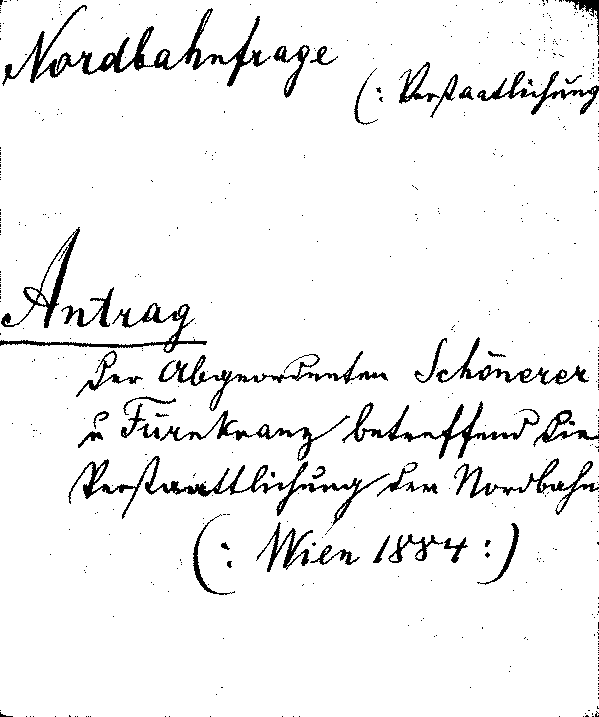 Nordbahnfrage
(: Verstaatlichung
Antrag
der Abgeordneten Schönerer
u Fürnkranz betreffend die
Verstaatlichung der Nordbahn
(: Wien 1884 :)